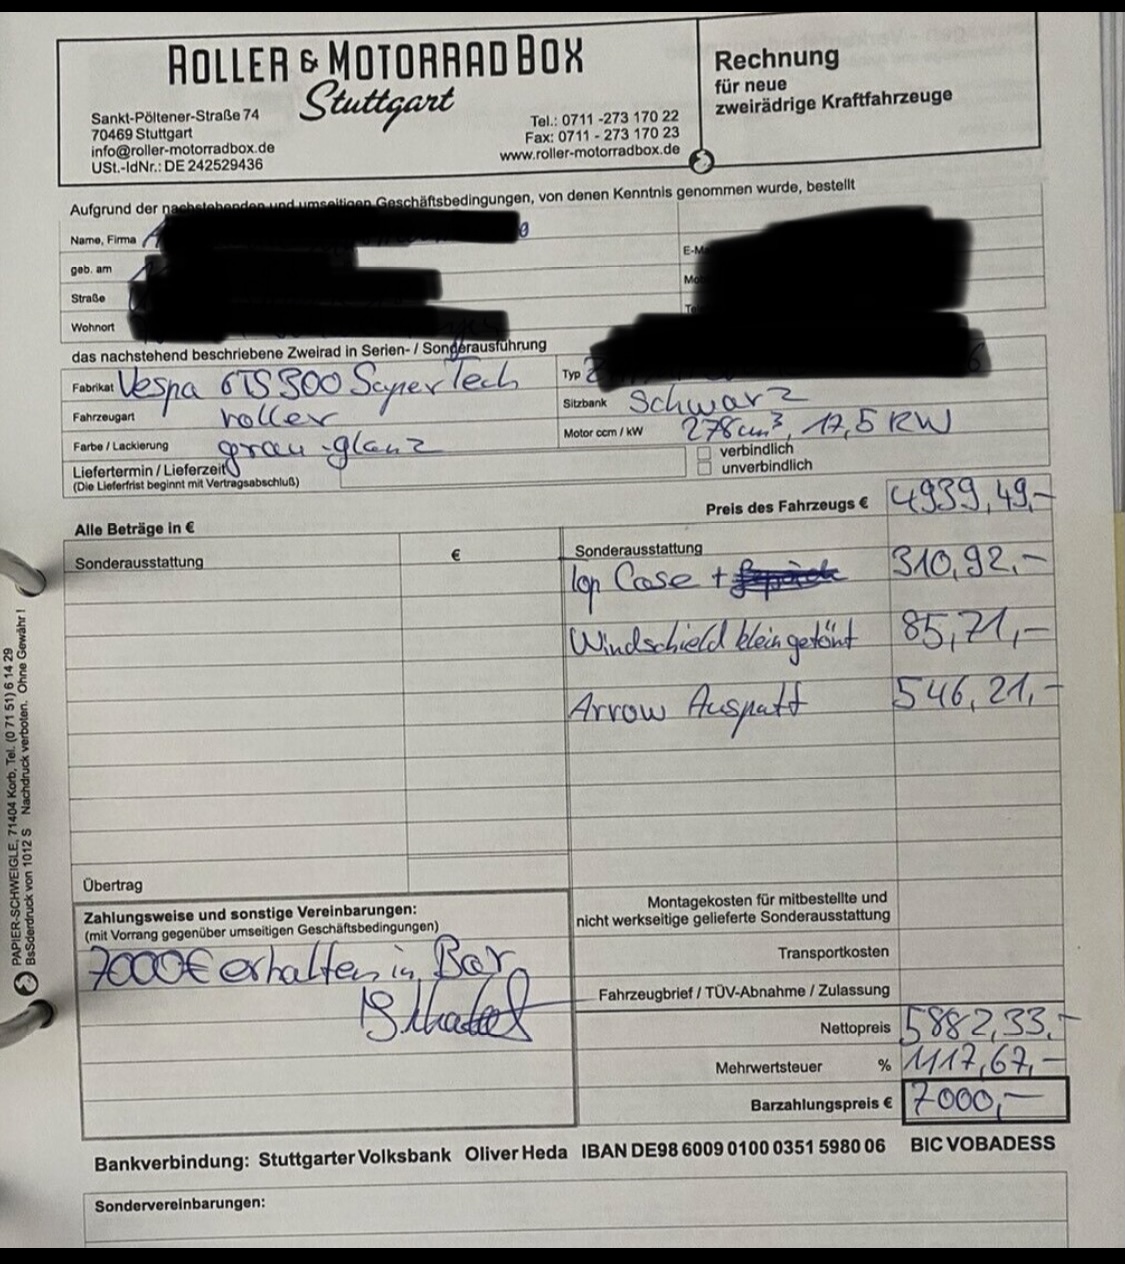 ROLLER & MOTORRAD BOX
Stuttgart
Sankt-Pöltener-Straße 74
70469 Stuttgart
info@roller-motorradbox.de
USt.-IdNr.: DE 242529436
Tel.: 0711 -273 170 22
Fax: 0711 - 273 170 23
www.roller-motorradbox.de
Rechnung
für neue
zweirädrige Kraftfahrzeuge
Aufgrund der nachstehenden und umseitigen Geschäftsbedingungen, von denen Kenntnis genommen wurde, bestellt
Name, Firma
geb. am
Straße
Wohnort
das nachstehend beschriebene Zweirad in Serien- / Sonderausführung
Fabrikat Vespa GTS 300 SuperTech
Typ
Fahrzeugart roller
Sitzbank Schwarz
Farbe / Lackierung grau-glanz
Motor ccm / kW 278cm³, 17,5 KW
Liefertermin / Lieferzeit
(Die Lieferfrist beginnt mit Vertragsabschluß)
verbindlich
unverbindlich
Preis des Fahrzeugs € 4939,49,-
Alle Beträge in €
Sonderausstattung €
Sonderausstattung
Top Case + 310,92,-
Windschield klein getönt 85,71,-
Arrow Auspuff 546,21,-
Übertrag
Zahlungsweise und sonstige Vereinbarungen:
(mit Vorrang gegenüber umseitigen Geschäftsbedingungen)
7000€ erhalten in Bar
Montagekosten für mitbestellte und
nicht werkseitige gelieferte Sonderausstattung
Transportkosten
Fahrzeugbrief / TÜV-Abnahme / Zulassung
Nettopreis 5882,33,-
Mehrwertsteuer % 1117,67,-
Barzahlungspreis € 7000,-
Bankverbindung: Stuttgarter Volksbank Oliver Heda IBAN DE98 6009 0100 0351 5980 06 BIC VOBADESS
Sondervereinbarungen:
PAPIER-SCHWEIGLE, 71404 Korb, Tel. (0 71 51) 6 14 29
BsSderdruck von 1012 S Nachdruck verboten. Ohne Gewähr !